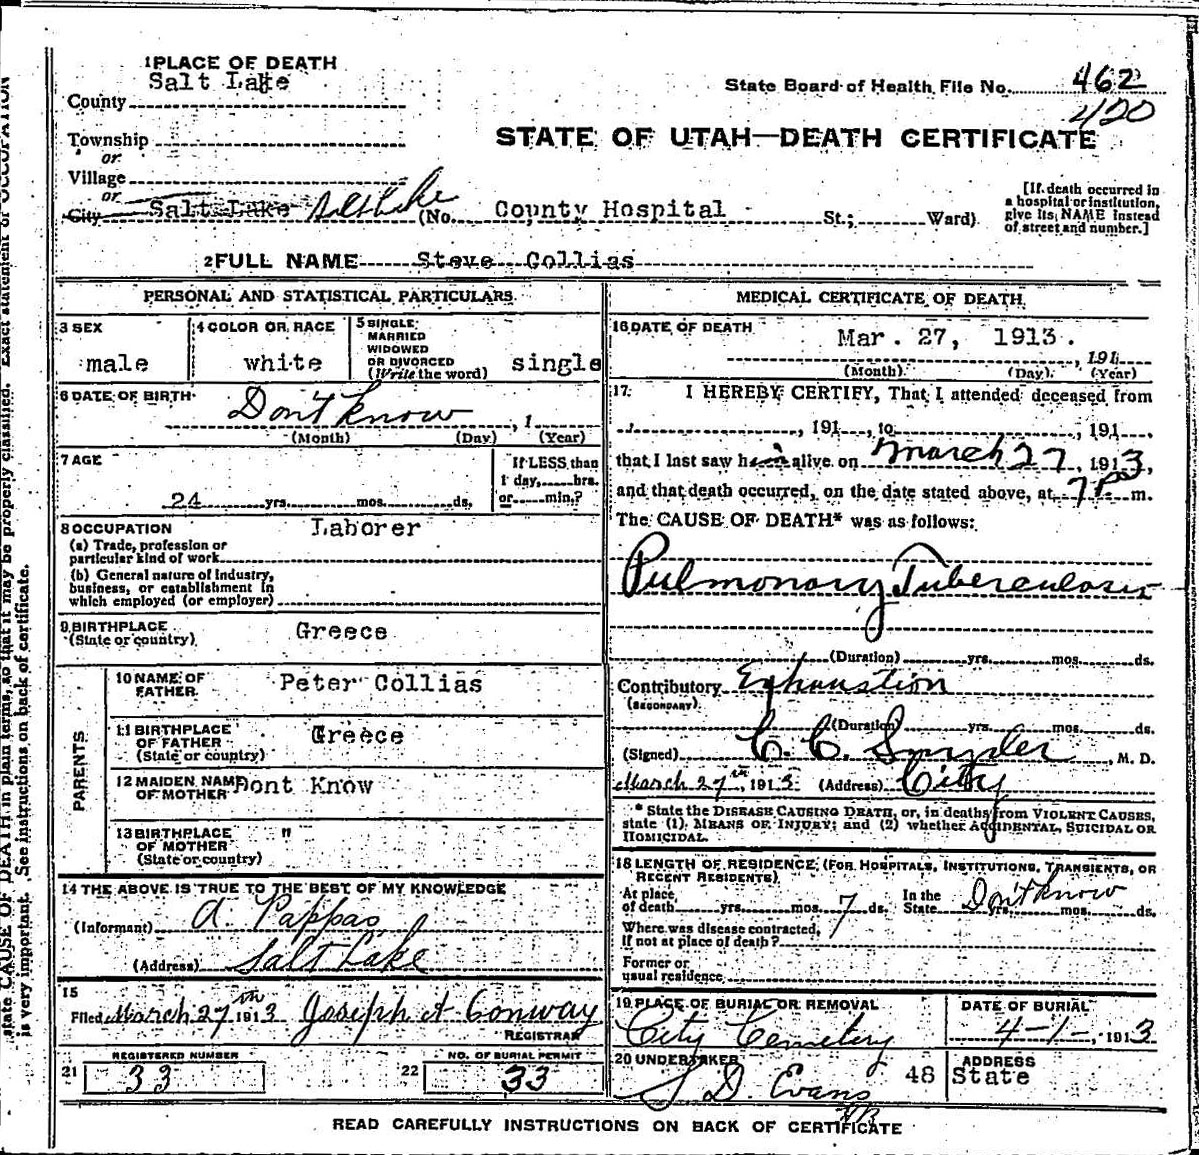 1 PLACE OF DEATH
Salt Lake
County
State Board of Health File No. 462
420
Township
or
STATE OF UTAH—DEATH CERTIFICATE
Village
or
City Salt Lake Salt Lake (No. County Hospital St.; Ward)
[If death occurred in
a hospital or institution,
give its NAME instead
of street and number.]
2 FULL NAME Steve Collias
PERSONAL AND STATISTICAL PARTICULARS
3 SEX
male
4 COLOR OR RACE
white
5 SINGLE,
MARRIED
WIDOWED
OR DIVORCED
(Write the word) single
6 DATE OF BIRTH
Don't know , 1
(Month) (Day) (Year)
7 AGE
24 yrs. mos. ds.
If LESS than
1 day, hrs.
or min.?
8 OCCUPATION Laborer
(a) Trade, profession or
particular kind of work
(b) General nature of industry,
business, or establishment in
which employed (or employer)
9 BIRTHPLACE
(State or country) Greece
PARENTS
10 NAME OF
FATHER Peter Collias
11 BIRTHPLACE
OF FATHER
(State or country) Greece
12 MAIDEN NAME
OF MOTHER Dont Know
13 BIRTHPLACE
OF MOTHER
(State or country) "
14 THE ABOVE IS TRUE TO THE BEST OF MY KNOWLEDGE
(Informant) A. Pappas
(Address) Salt Lake
15
Filed March 27th 1913 Joseph A Conway
REGISTRAR
21 REGISTERED NUMBER
33
22 NO. OF BURIAL PERMIT
33
MEDICAL CERTIFICATE OF DEATH
16 DATE OF DEATH
Mar. 27, 1913.
, 191
(Month) (Day) (Year)
17. I HEREBY CERTIFY, That I attended deceased from
, 191 , to , 191 ,
that I last saw him alive on March 27, 1913,
and that death occurred, on the date stated above, at 7 P m.
The CAUSE OF DEATH* was as follows:
Pulmonary Tuberculosis
(Duration) yrs. mos. ds.
Contributory Exhaustion
(SECONDARY)
(Duration) yrs. mos. ds.
(Signed) C. C. Snyder, M. D.
March 27th, 1913 (Address) City
* State the DISEASE CAUSING DEATH, or, in deaths from VIOLENT CAUSES,
state (1) MEANS OF INJURY; and (2) whether ACCIDENTAL, SUICIDAL OR
HOMICIDAL.
18 LENGTH OF RESIDENCE (FOR HOSPITALS, INSTITUTIONS, TRANSIENTS, OR
RECENT RESIDENTS)
At place
of death yrs. mos. 7 ds.
In the
State Don't know yrs. mos. ds.
Where was disease contracted,
If not at place of death?
Former or
usual residence
19 PLACE OF BURIAL OR REMOVAL
City Cemetery
DATE OF BURIAL
4-1-, 1913
20 UNDERTAKER
S D. Evans
ADDRESS
48 State
READ CAREFULLY INSTRUCTIONS ON BACK OF CERTIFICATE
state CAUSE OF DEATH in plain terms, so that it may be properly classified. Exact statement of OCCUPATION
is very important. See instructions on back of certificate.